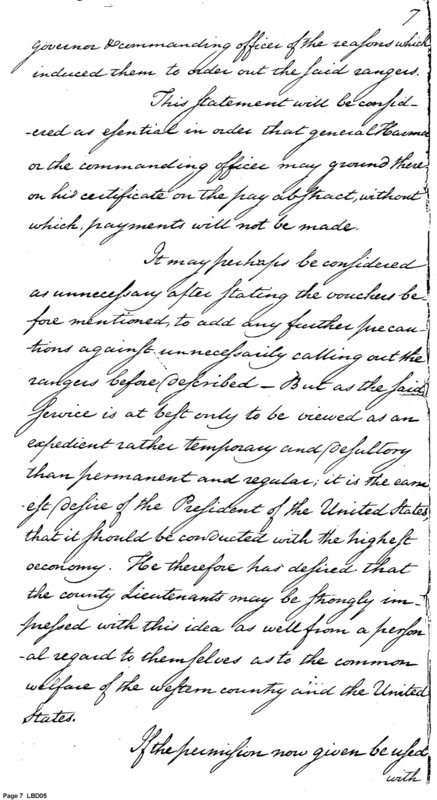 7
governor & commanding officer of the reasons which
induced them to order out the said rangers.
This statement will be consid-
-ered as esential in order that general Harmar
or the commanding officer may ground there-
on his certificate on the pay abstract, without
which, payments will not be made.
It may perhaps be considered
as unnecessary after stating the vouchers be-
fore mentioned, to add any further precau-
tions against unnecessarily calling out the
rangers before described — But as the said
service is at best only to be viewed as an
expedient rather temporary and desultory
than permanent and regular; it is the earn
-est desire of the President of the United States,
that it should be conducted with the highest
oeconomy. He therefore has desired that
the county Lieutenants may be strongly im-
pressed with this idea as well from a person
-al regard to themselves as to the common
welfare of the western country and the United
States.
If the permission now given be used
with
Page 7 LBD05